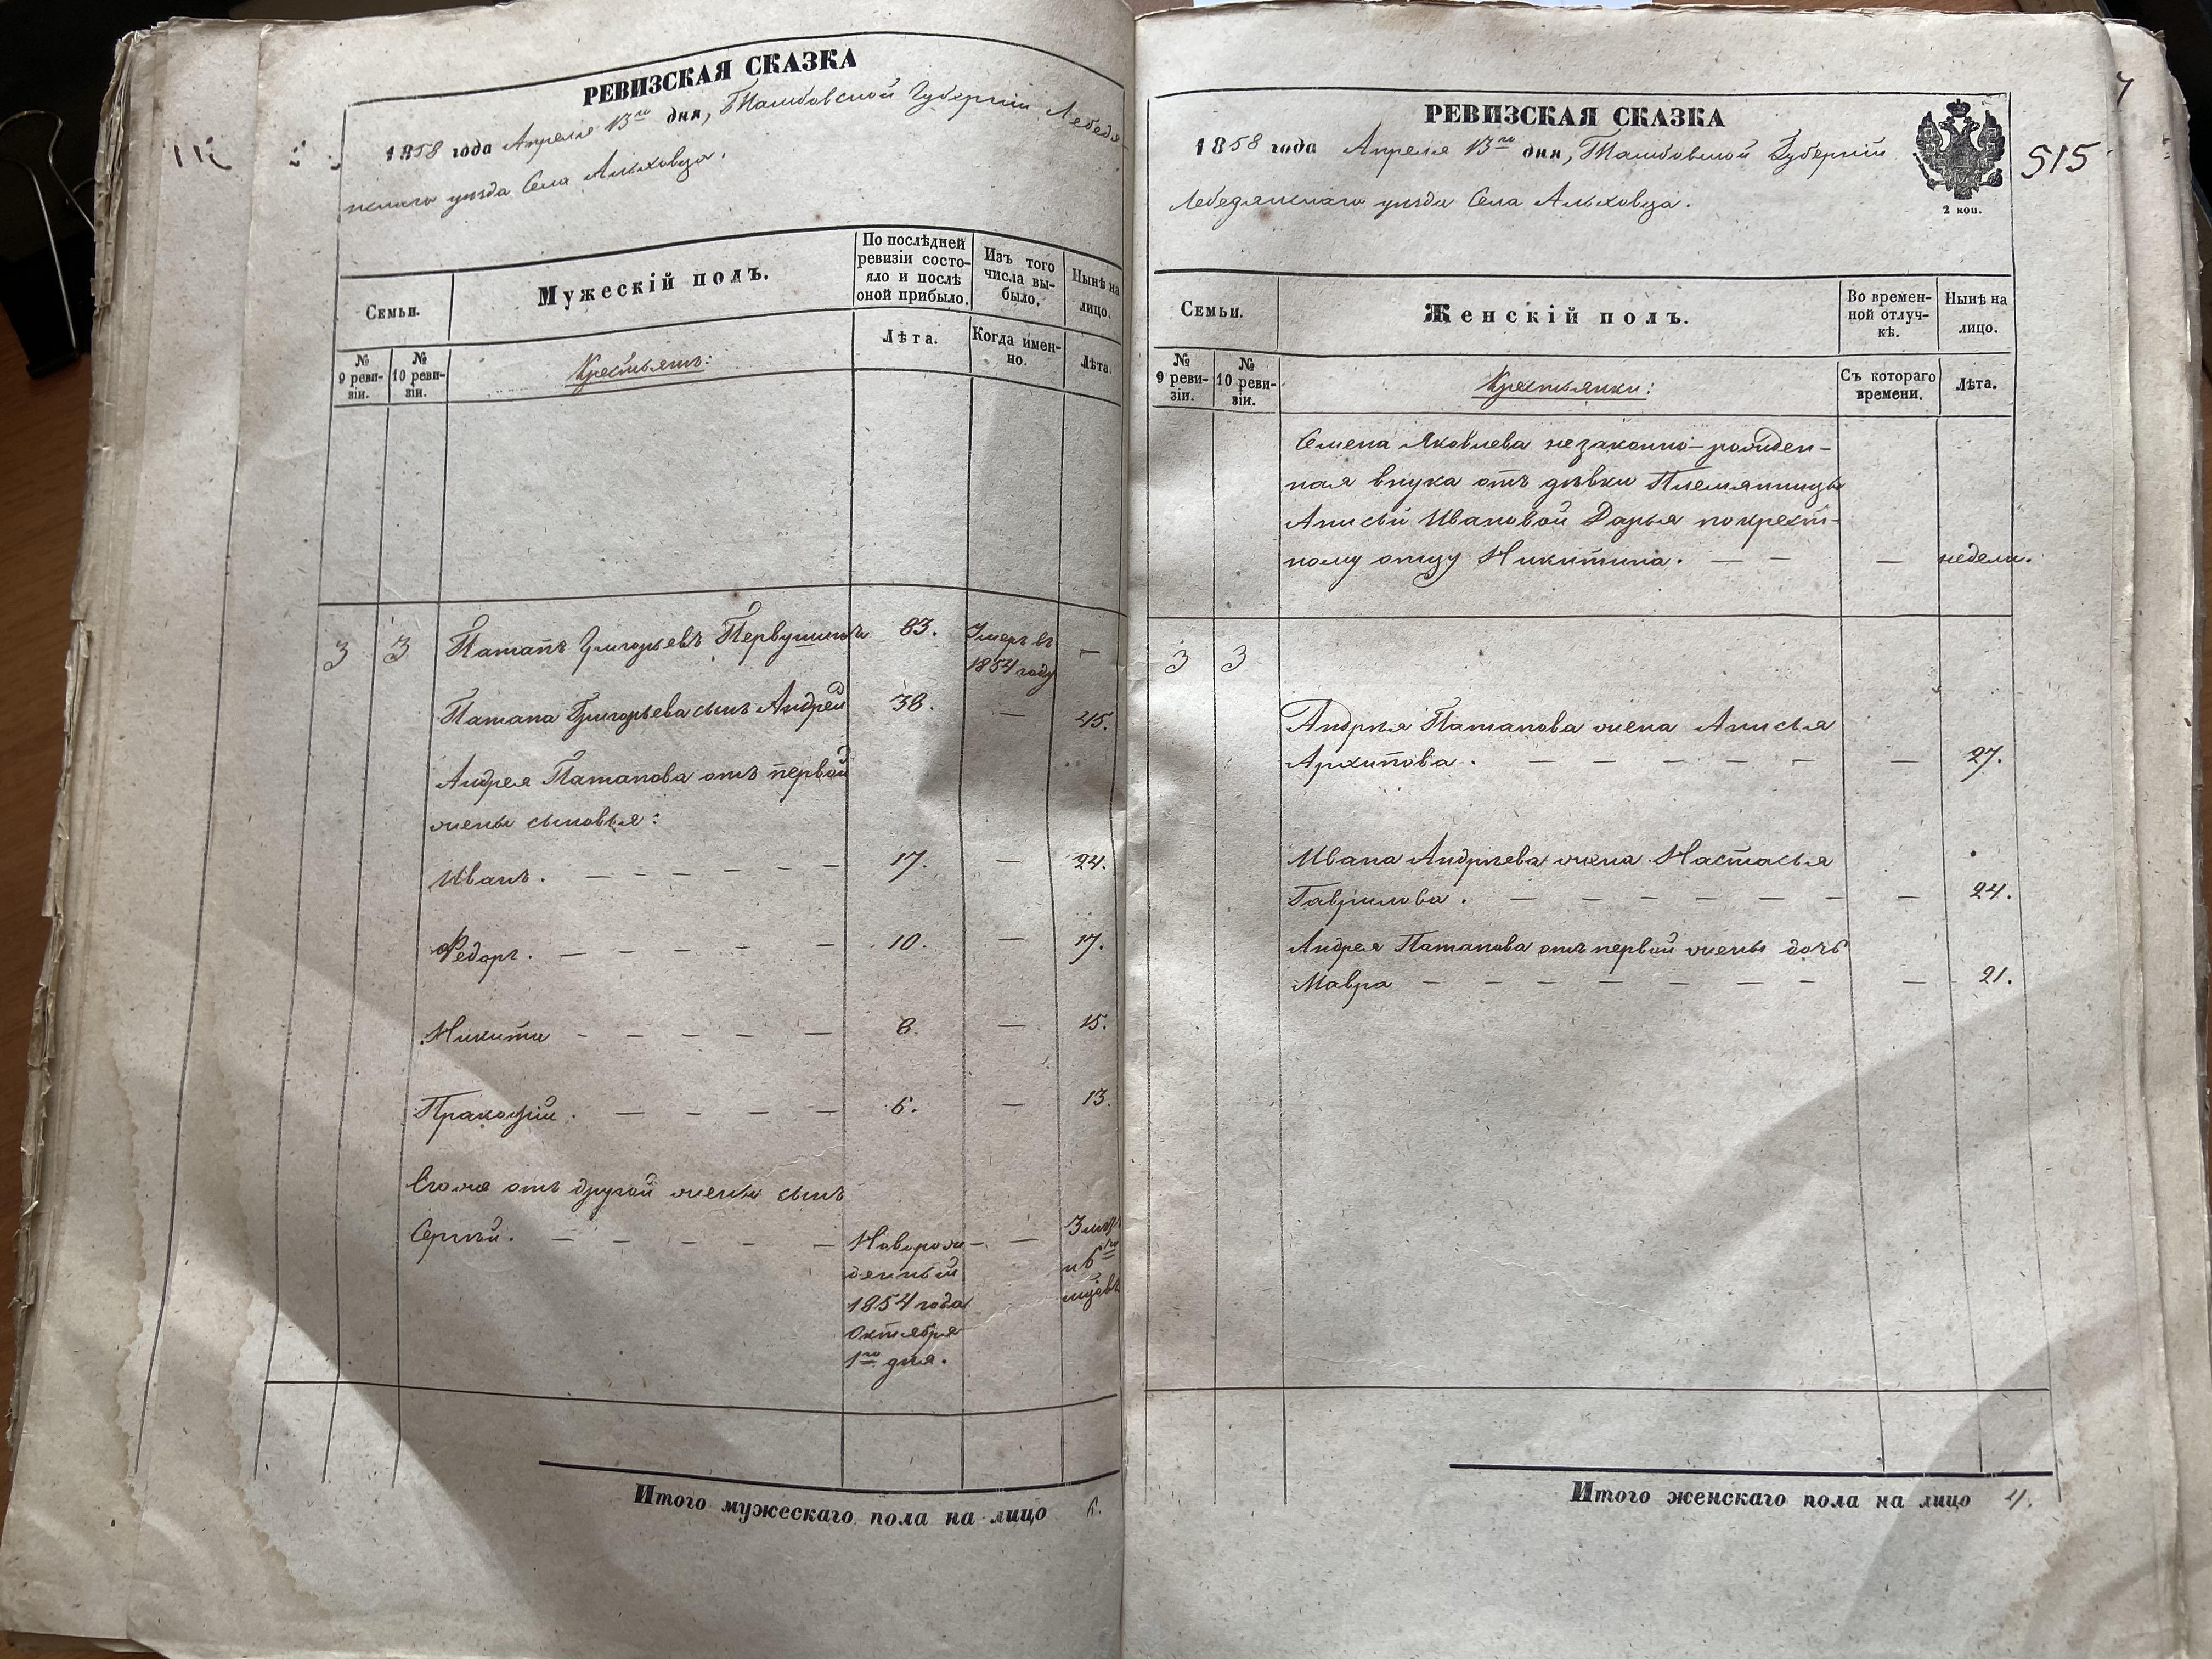 РЕВИЗСКАЯ СКАЗКА
1858 года Апреля 13го дня, Тамбовской Губернiи Лебедя-
нскаго уѣзда Села Альховца.
Семьи.
Мужескiй полъ.
По послѣдней ревизiи состо-
яло и послѣ оной прибыло.
Изъ того числа вы-
было.
Нынѣ на лицо.
№ 9 реви-
зiи.
№ 10 реви-
зiи.
Крестьянъ:
Лѣта.
Когда имен-
но.
Лѣта.
3 3 Патапъ Григорьевъ Первушинъ 63. Умеръ въ —
1854 году
Патапа Григорьева сынъ Андрей 38. — 45.
Андрея Патапова отъ первой
жены сыновья:
Иванъ. — — — — — — 17. — 24.
Федоръ. — — — — — 10. — 17.
Никита — — — — — 8. — 15.
Пракофiй. — — — — 6. — 13.
Егоже отъ другой жены сынъ
Сергѣй. — — — — — Поворож- —
денный
1854 года
Октября
1го дня.
Итого мужескаго пола на лицо 6.
РЕВИЗСКАЯ СКАЗКА
1858 года Апреля 13го дня, Тамбовской Губернiи
Лебедянскаго уѣзда Села Альховца.
2 коп.
515
Семьи.
Женскiй полъ.
Во времен-
ной отлуч-
кѣ.
Нынѣ на лицо.
№ 9 реви-
зiи.
№ 10 реви-
зiи.
Крестьянки:
Съ котораго времени.
Лѣта.
Семена Яковлева незаконно-рожден-
ная внука отъ дѣвки Племянницы
Анисьи Ивановой Дарья по крест-
ному отцу Никитина. — — — недели.
3 3
Андрѣя Патапова жена Анисья
Архипова. — — — — — — 27.
Ивана Андрѣева жена Настасья
Гаврилова. — — — — — — — 24.
Андрея Патапова отъ первой жены дочь
Мавра — — — — — — — — 21.
Итого женскаго пола на лицо 4.